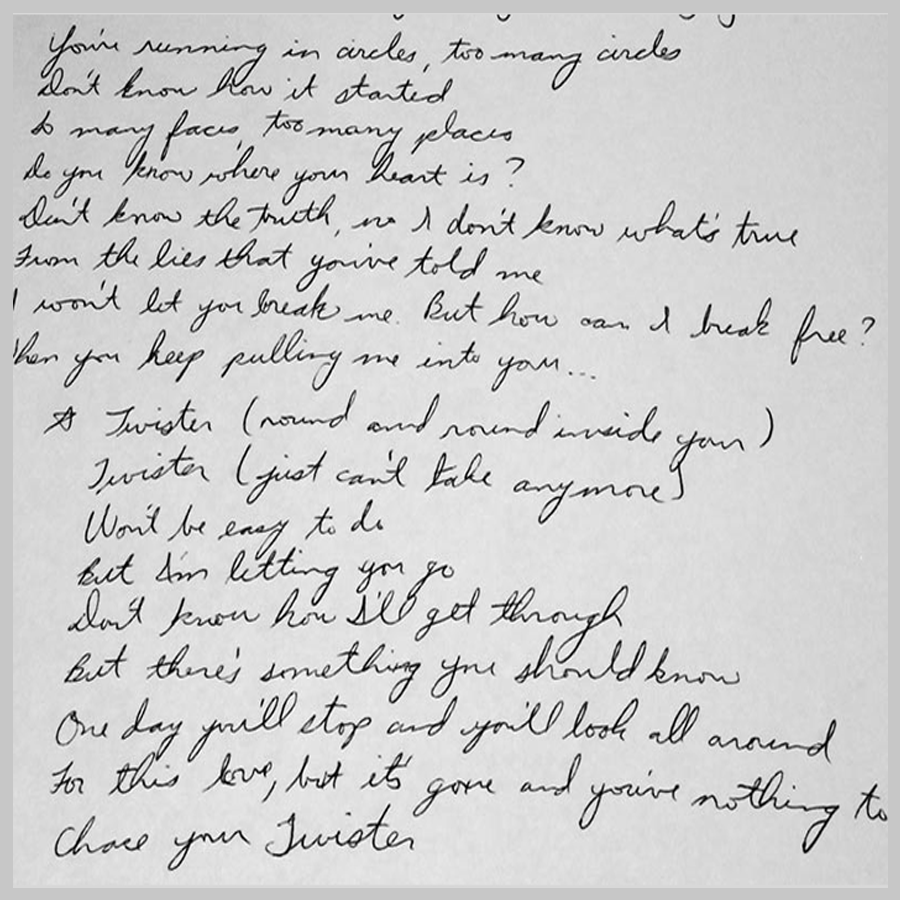 You're running in circles, too many circles
Don't know how it started
So many faces, too many places
Do you know where your heart is?
Don't know the truth, no I don't know what's true
From the lies that you've told me
I won't let you break me. But how can I break free?
When you keep pulling me into your...
☆ Twister (round and round inside your)
Twister (just can't take anymore)
Won't be easy to do
But I'm letting you go
Don't know how I'll get through
But there's something you should know
One day you'll stop and you'll look all around
For this love, but it's gone and you've nothing to
Chase your Twister